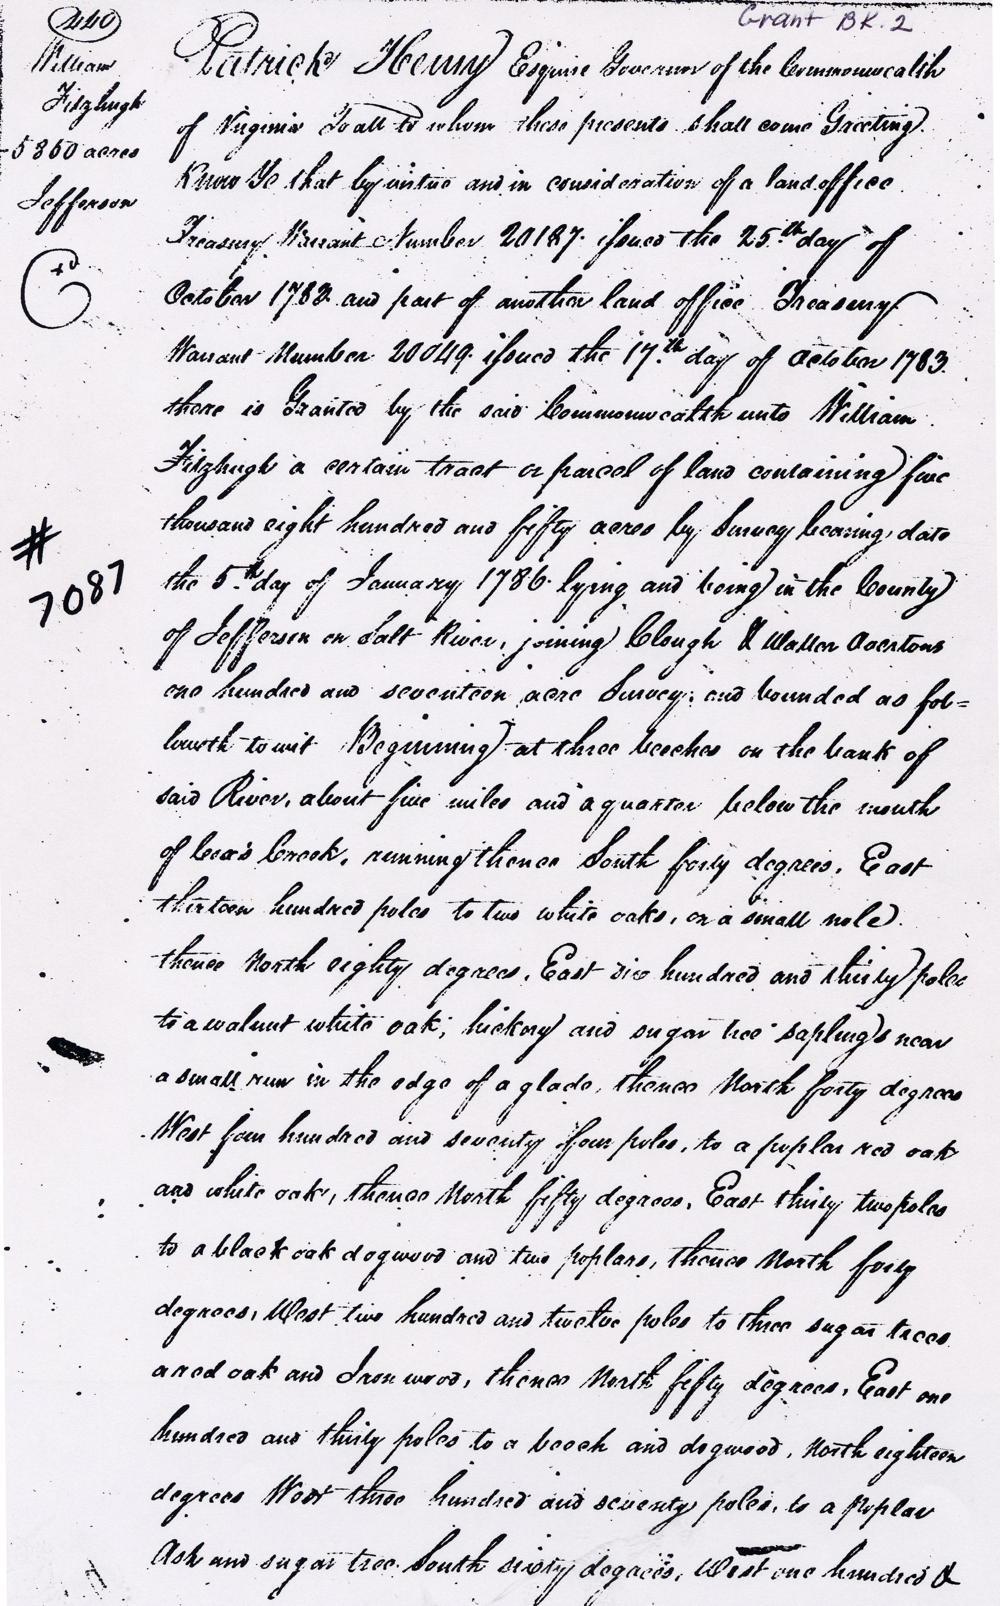 Grant BK. 2
440
William
Fitzhugh
5850 acres
Jefferson
# 7087
Patrick Henry Esquire Governor of the Commonwealth
of Virginia To all to whom these presents shall come Greeting
Know Ye that by virtue and in consideration of a land office
Treasury Warrant Number 20187. issued the 25.th day of
October 1783 and part of another land office Treasury
Warrant Number 20049. issued the 17.th day of October 1783.
there is Granted by the said Commonwealth unto William
Fitzhugh a certain tract or parcel of land containing five
thousand eight hundred and fifty acres by Survey bearing date
the 5.th day of January 1786. lying and being in the County
of Jefferson on Salt River, joining Clough & Waller Overtons
one hundred and seventeen acre Survey. and bounded as fol=
loweth to wit Beginning at three beeches on the bank of
said River, about five miles and a quarter below the mouth
of Cox's Creek, running thence South forty degrees, East
thirteen hundred poles to two white oaks, on a small nole
thence North eighty degrees, East six hundred and thirty poles
to a walnut white oak, hickory and sugar tree saplings near
a small run in the edge of a glade, thence North forty degrees
West four hundred and seventy four poles, to a poplar red oak
and white oak, thence North fifty degrees, East thirty two poles
to a black oak dogwood and two poplars, thence North forty
degrees, West two hundred and twelve poles to three sugar trees
a red oak and Iron wood, thence North fifty degrees, East one
hundred and thirty poles to a beech and dogwood, North eighteen
degrees West three hundred and seventy poles, to a Poplar
Ash and sugar tree South sixty degrees, West one hundred &